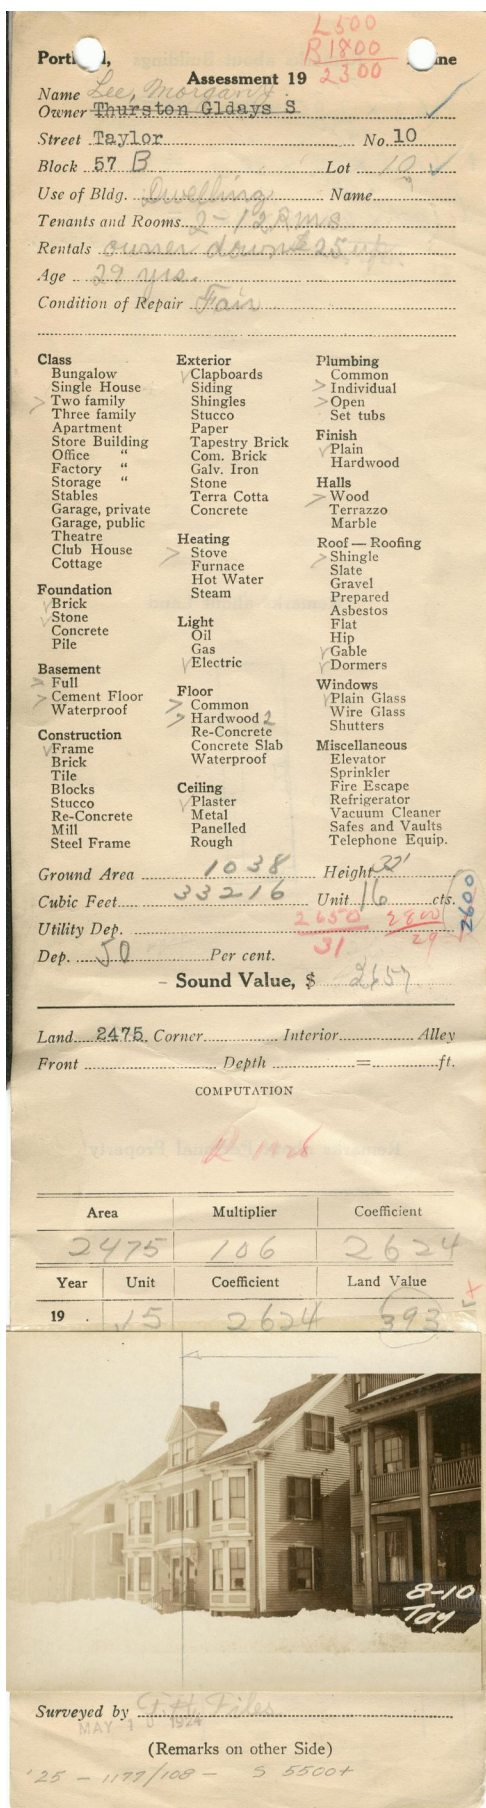 L500
B1800
2300
Portland, Maine
Assessment 19
Name Lee, Morgan
Owner Thurston Gldays S
Street Taylor No. 10
Block 57 B Lot 10
Use of Bldg. Dwelling Name
Tenants and Rooms 2-12 Rms
Rentals owner down $25 up.
Age 29 yrs.
Condition of Repair Fair
Class
Bungalow
Single House
Two family
Three family
Apartment
Store Building
Office "
Factory "
Storage "
Stables
Garage, private
Garage, public
Theatre
Club House
Cottage
Foundation
Brick
Stone
Concrete
Pile
Basement
Full
Cement Floor
Waterproof
Construction
Frame
Brick
Tile
Blocks
Stucco
Re-Concrete
Mill
Steel Frame
Exterior
Clapboards
Siding
Shingles
Stucco
Paper
Tapestry Brick
Com. Brick
Galv. Iron
Stone
Terra Cotta
Concrete
Heating
Stove
Furnace
Hot Water
Steam
Light
Oil
Gas
Electric
Floor
Common
Hardwood 2
Re-Concrete
Concrete Slab
Waterproof
Ceiling
Plaster
Metal
Panelled
Rough
Plumbing
Common
Individual
Open
Set tubs
Finish
Plain
Hardwood
Halls
Wood
Terrazzo
Marble
Roof — Roofing
Shingle
Slate
Gravel
Prepared
Asbestos
Flat
Hip
Gable
Dormers
Windows
Plain Glass
Wire Glass
Shutters
Miscellaneous
Elevator
Sprinkler
Fire Escape
Refrigerator
Vacuum Cleaner
Safes and Vaults
Telephone Equip.
Ground Area 1038 Height 32'
Cubic Feet 33216 Unit 16 cts.
2600
Utility Dep. 2650 2800
31 29
Dep. 50 Per cent.
- Sound Value, $ 2657
Land 2475 Corner Interior Alley
Front Depth = ft.
COMPUTATION
R 1926
Area Multiplier Coefficient
2475 106 2624
Year Unit Coefficient Land Value
19 15 2624 393
8-10
Tay
Surveyed by F. H. Files
MAY 10 1924
(Remarks on other Side)
'25 - 1177/108 - S 5500+